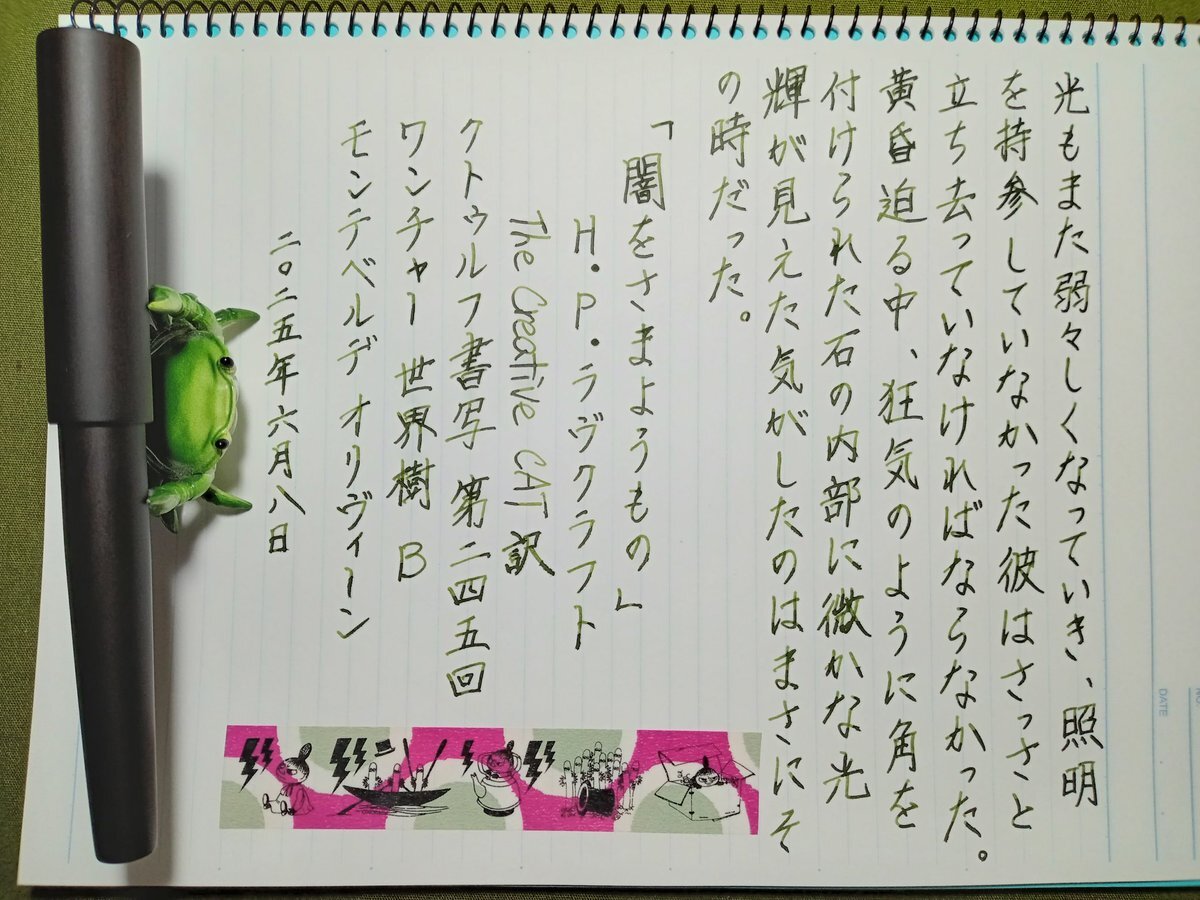 光もまた弱々しくなっていき、照明
を持参していなかった彼はさっさと
立ち去っていなければならなかった。
黄昏迫る中、狂気のように角を
付けられた石の内部に微かな光
輝が見えた気がしたのはまさにそ
の時だった。
「闇をさまようもの」
H・P・ラヴクラフト
The Creative CAT 訳
クトゥルフ書写 第二四五回
ワンチャー 世界樹 B
モンテベルデ オリヴィーン
二〇二五年六月八日
NO.
DATE